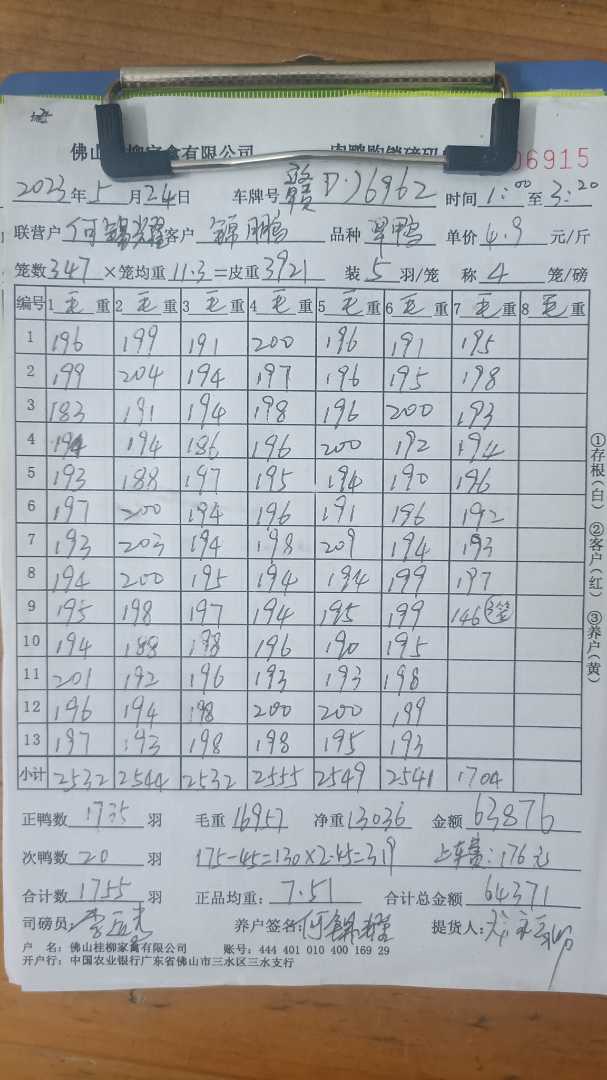 佛山桂柳家禽有限公司 6915
2023年5月24日 车牌号 赣D·J6962 时间1:00至3:20
联营户 何锦耀 客户 锦鹏 品种 单价4.9元/斤
笼数347×笼均重11.3=皮重3921 装5羽/笼 称4笼/磅
编号 1毛重 2毛重 3毛重 4毛重 5毛重 6毛重 7毛重 8毛重
1 196 199 191 200 196 191 195
2 199 204 194 197 196 195 198
3 183 191 194 198 196 200 193
4 194 194 186 196 200 192 194
5 193 188 197 195 194 190 196
6 197 200 194 196 191 196 192
7 193 203 194 198 209 194 193
8 194 200 195 194 194 199 197
9 195 198 197 194 195 199 146
10 194 188 198 196 190 195
11 201 192 196 193 193 198
12 196 194 198 200 200 199
13 197 193 198 198 195 193
小计 2532 2544 2532 2555 2549 2541 1704
正鸭数1735羽 毛重16957 净重13036 金额63876
次鸭数20羽 175-45=130×2.45=319 上车费:176元
合计数1755羽 正品均重:7.51 合计总金额64371
司磅员: 养户签名:何锦耀 提货人:
户 名:佛山桂柳家禽有限公司 账号:444 401 010 400 169 29
开户行:中国农业银行广东省佛山市三水区三水支行
①存根(白) ②客户(红) ③养户(黄)